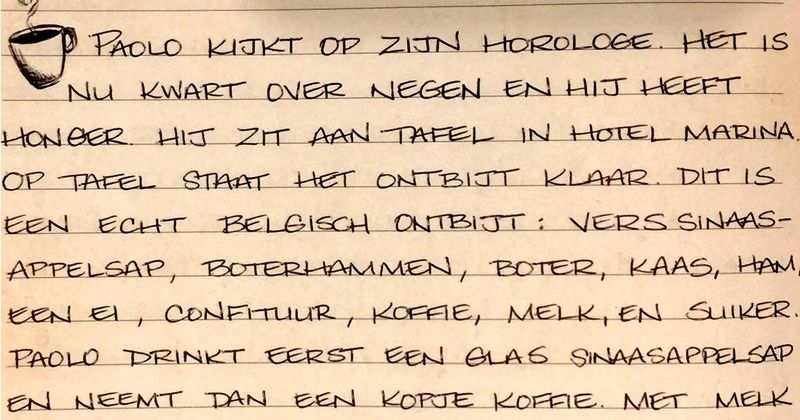 PAOLO KIJKT OP ZIJN HOROLOGE. HET IS
NU KWART OVER NEGEN EN HIJ HEEFT
HONGER. HIJ ZIT AAN TAFEL IN HOTEL MARINA.
OP TAFEL STAAT HET ONTBIJT KLAAR. DIT IS
EEN ECHT BELGISCH ONTBIJT: VERS SINAAS-
APPELSAP, BOTERHAMMEN, BOTER, KAAS, HAM,
EEN EI, CONFITUUR, KOFFIE, MELK, EN SUIKER.
PAOLO DRINKT EERST EEN GLAS SINAASAPPELSAP
EN NEEMT DAN EEN KOPJE KOFFIE. MET MELK